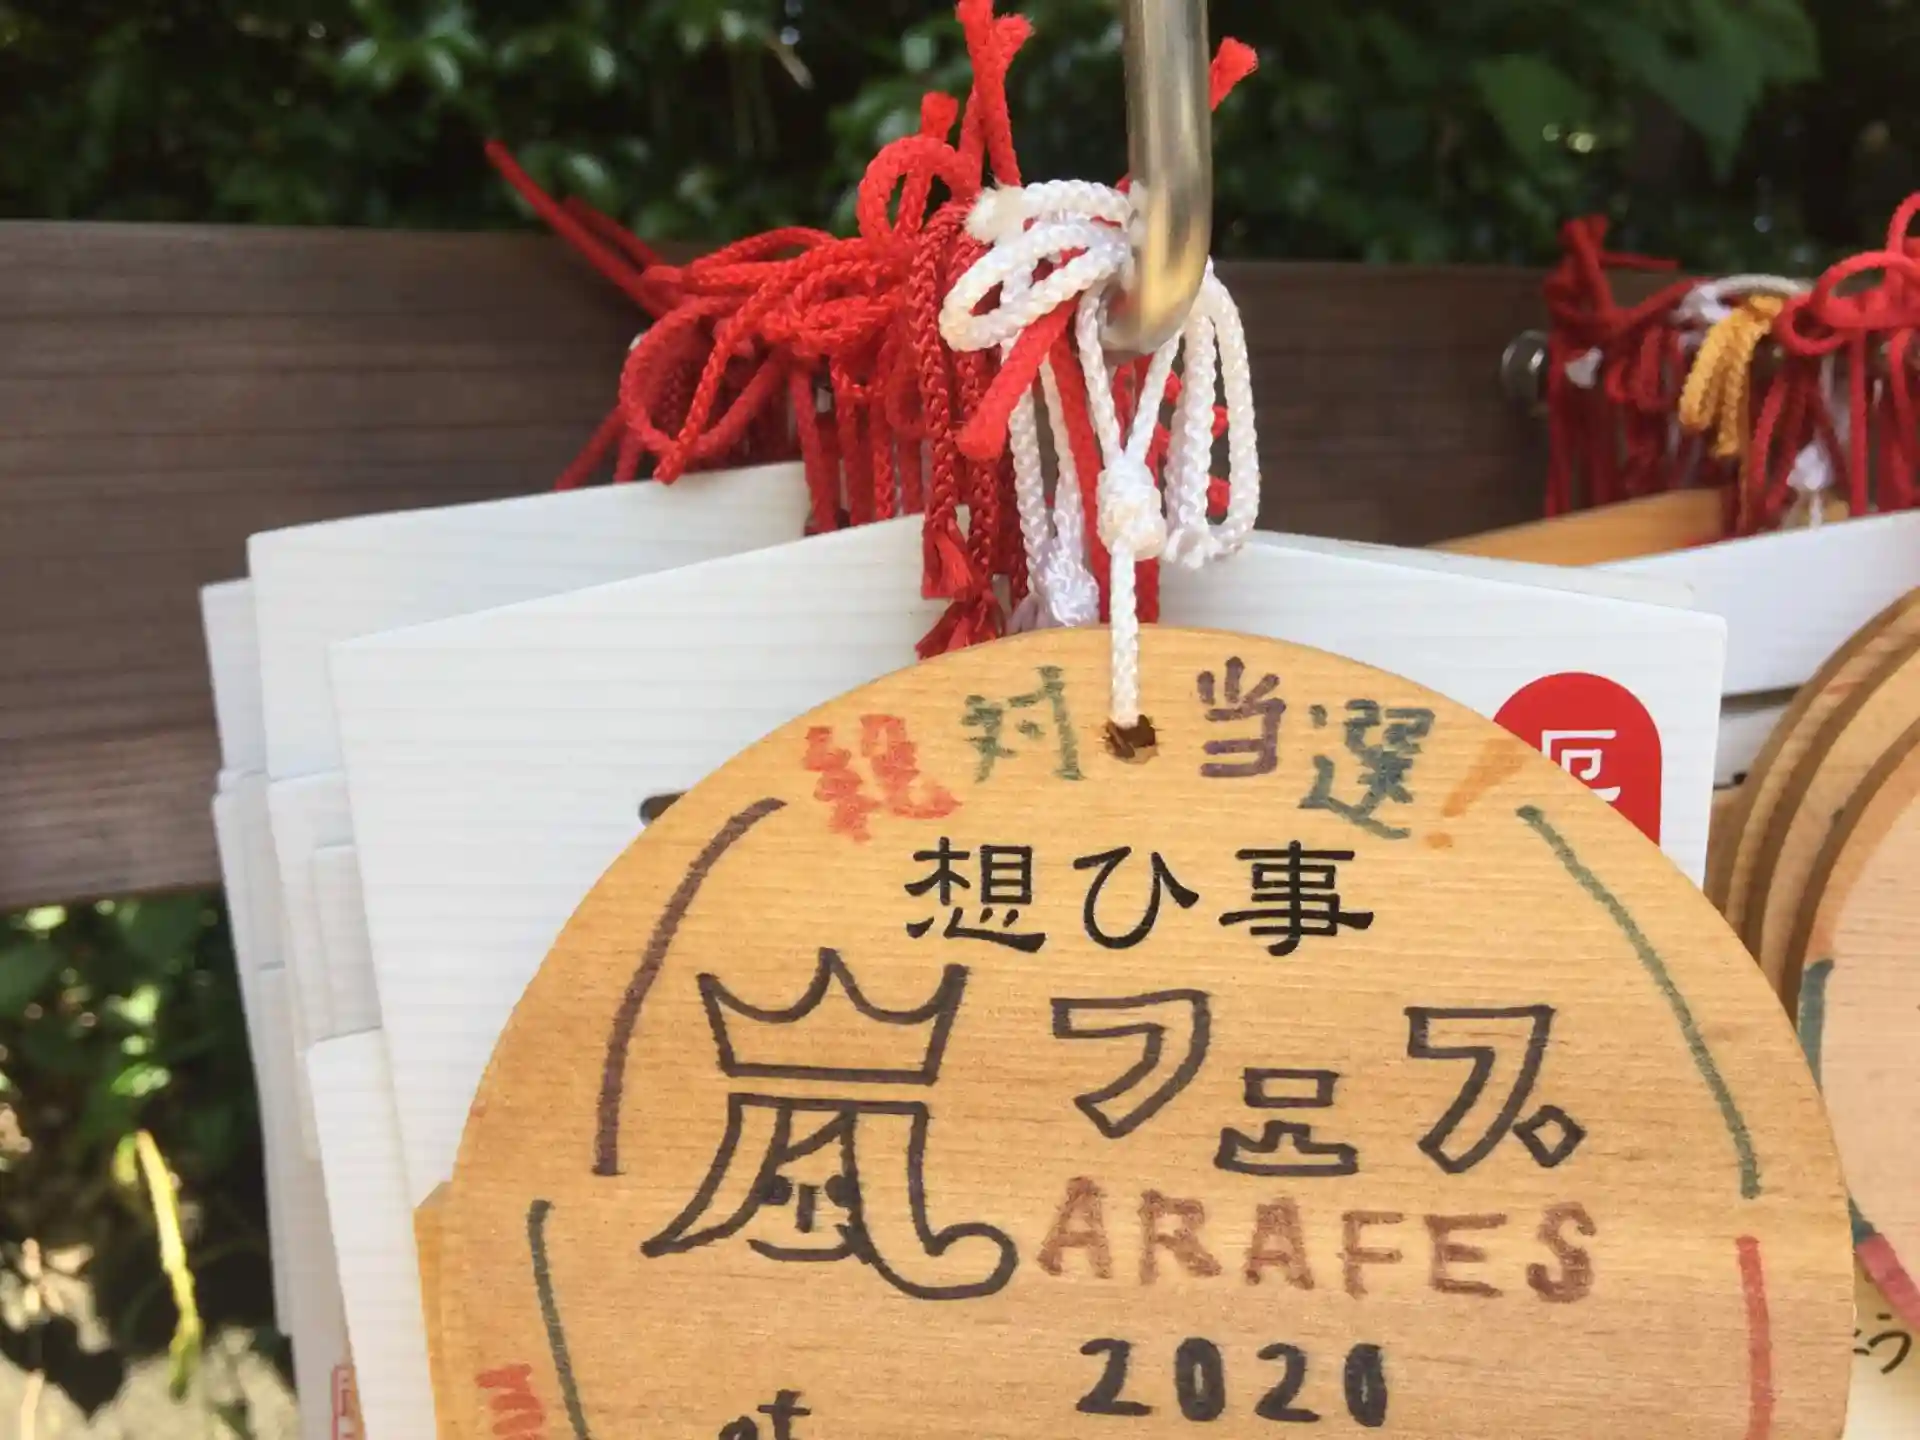 絶対当選!
厄
想ひ事
嵐フェス
ARAFES
2020
at